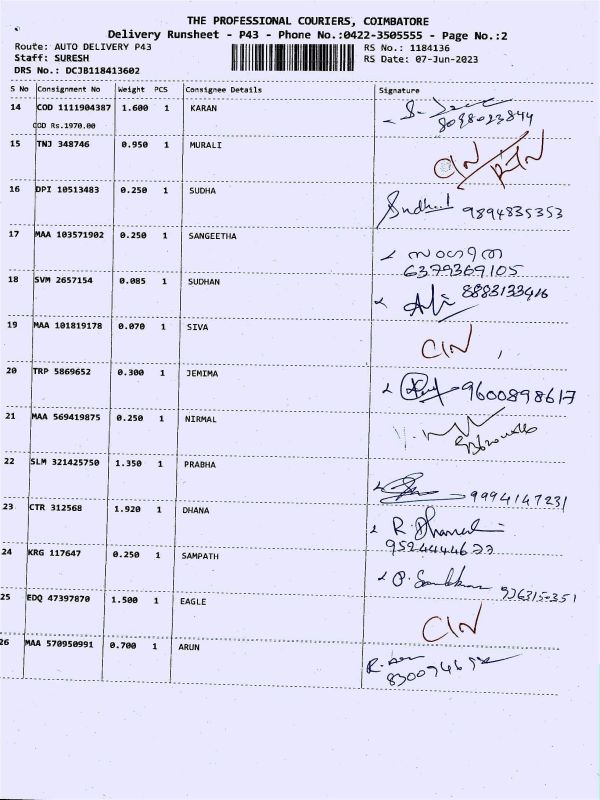 THE PROFESSIONAL COURIERS, COIMBATORE
Delivery Runsheet - P43 - Phone No.:0422-3505555 - Page No.:2
Route: AUTO DELIVERY P43 RS No.: 1184136
Staff: SURESH RS Date: 07-Jun-2023
DRS No.: DCJB118413602
S No Consignment No Weight PCS Consignee Details Signature
14 COD 1111904387 1.600 1 KARAN
COD Rs.1970.00 8098023844
15 TNJ 348746 0.950 1 MURALI CIN RTN
16 DPI 10513483 0.250 1 SUDHA 9894835353
17 MAA 103571902 0.250 1 SANGEETHA
6379369105
18 SVM 2657154 0.085 1 SUDHAN 8883133416
19 MAA 101819178 0.070 1 SIVA CIN
20 TRP 5869652 0.300 1 JEMIMA 9600898617
21 MAA 569419875 0.250 1 NIRMAL
22 SLM 321425750 1.350 1 PRABHA 9994147231
23 CTR 312568 1.920 1 DHANA R. Dhana
24 KRG 117647 0.250 1 SAMPATH
25 EDQ 47397870 1.500 1 EAGLE CIN
26 MAA 570950991 0.700 1 ARUN